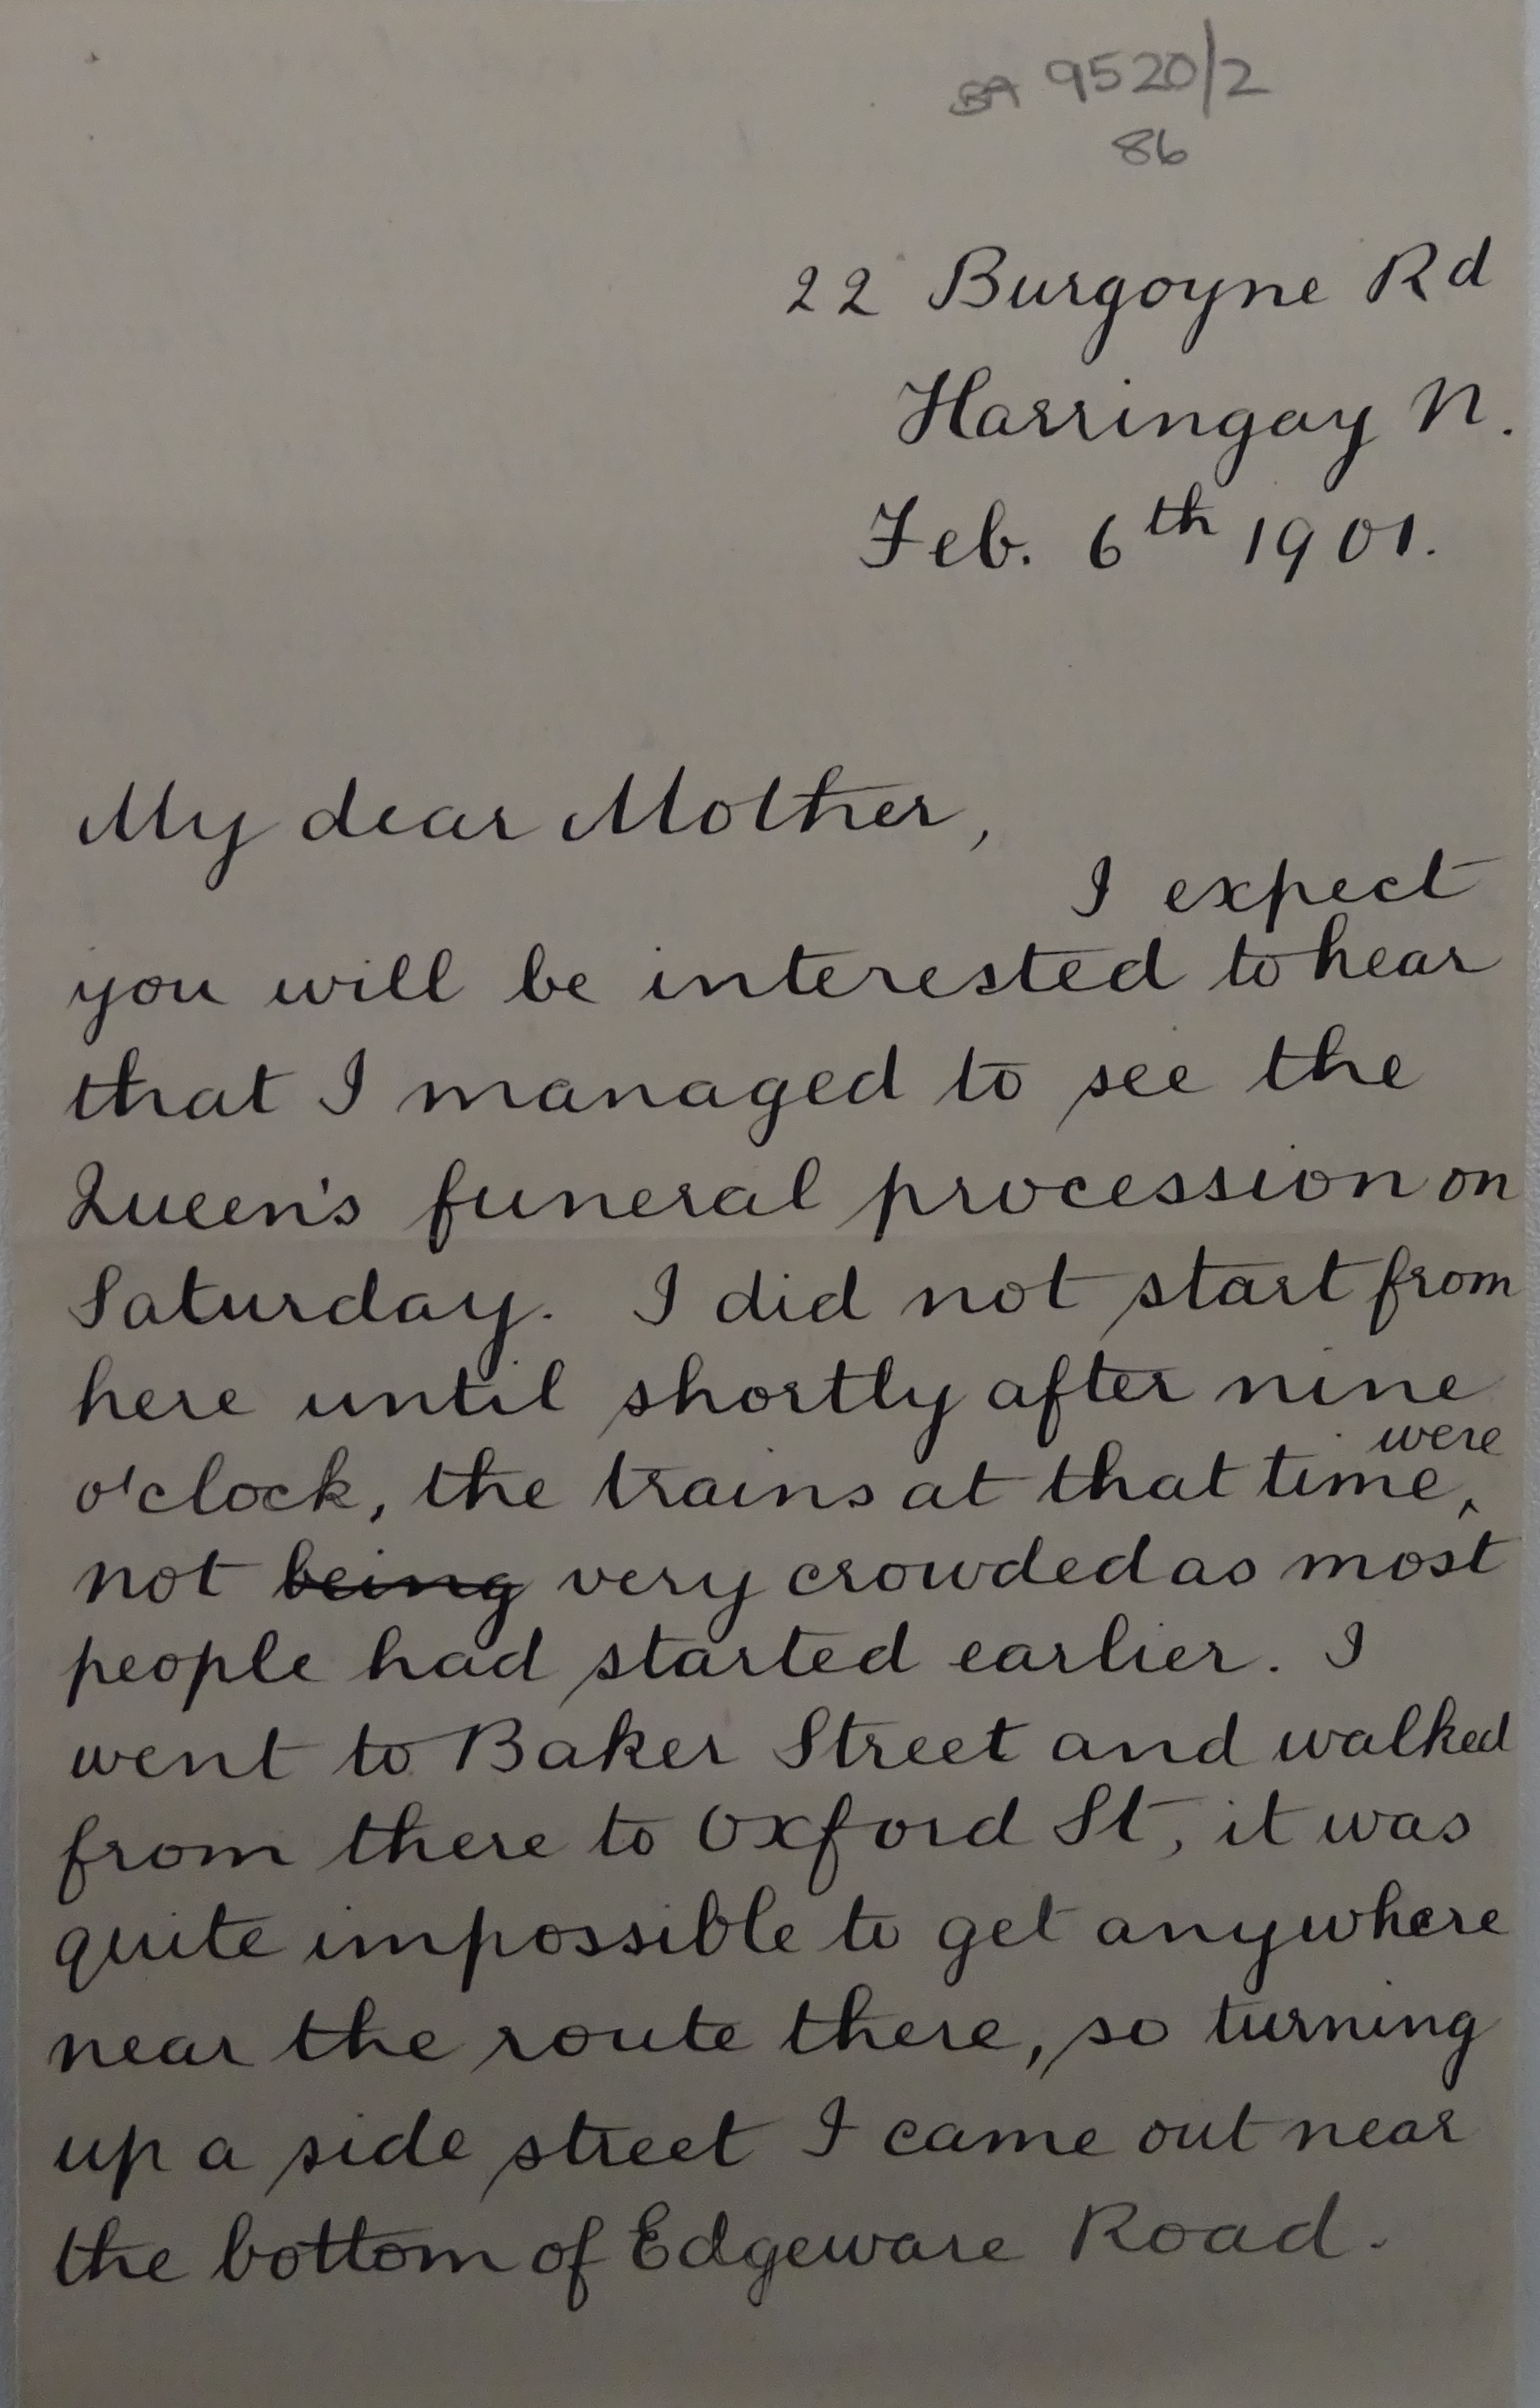 BA 9520/2
86
22 Burgoyne Rd
Harringay N.
Feb. 6th 1901.
My dear Mother,
I expect
you will be interested to hear
that I managed to see the
Queen's funeral procession on
Saturday. I did not start from
here until shortly after nine
were
o'clock, the trains at that time,
not being very crowded as most
people had started earlier. I
went to Baker Street and walked
from there to Oxford St, it was
quite impossible to get anywhere
near the route there, so turning
up a side street I came out near
the bottom of Edgeware Road.